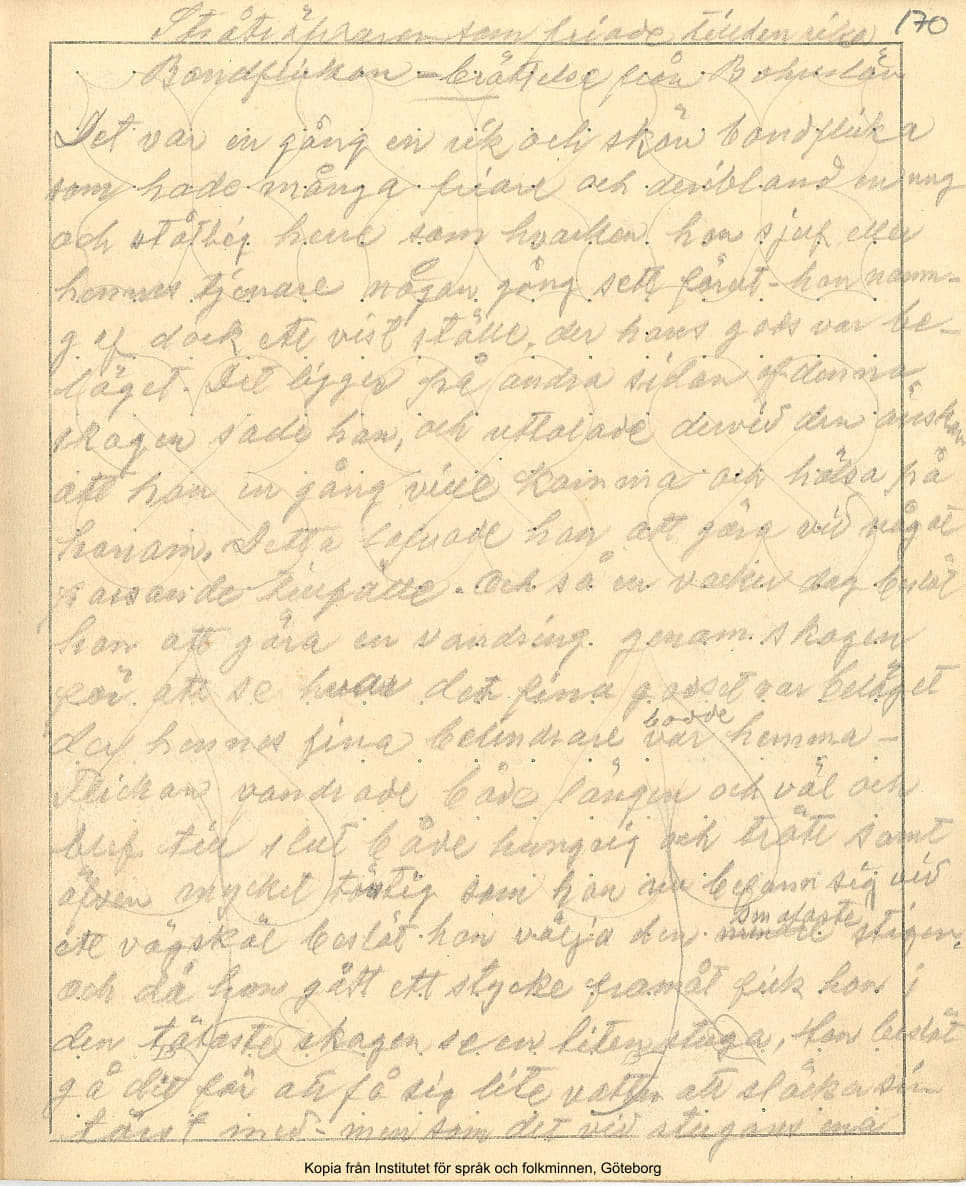 170
Stråtröfvaren som friade till den rika
Bondflickan – berättelse från Bohuslän
Det var en gång en rik och skön bondflicka
som hade många friare och deribland en ung
och ståtlig herre som hvarken hon sjelf eller
hennes tjenare någon gång sett förut – han namn-
gaf dock ett vist ställe, der hans gods var be-
läget. Det ligger på andra sidan af denna
skogen sade han, och uttalade dervid den önskan
att hon en gång ville komma och hälsa på
honom. Detta lofvade hon att göra vid något
passande tillfälle. Och så en vacker dag beslöt
hon att göra en vandring genom skogen
för att se hvar det fina godset var beläget
der hennes fina beundrare bodde hemma –
Flickan vandrade både länge och väl och
blef till slut både hungrig och trött samt
äfven mycket törstig som hon nu befann sig vid
ett vägskäl beslöt hon välja den smalaste stigen,
och då hon gått ett stycke framåt fick hon i
den tätaste skogen se en liten stuga, hon beslöt
gå dit för att få sig lite vatten att släcka sin
törst med – men som det vid stugans
Kopia från Institutet för språk och folkminnen, Göteborg